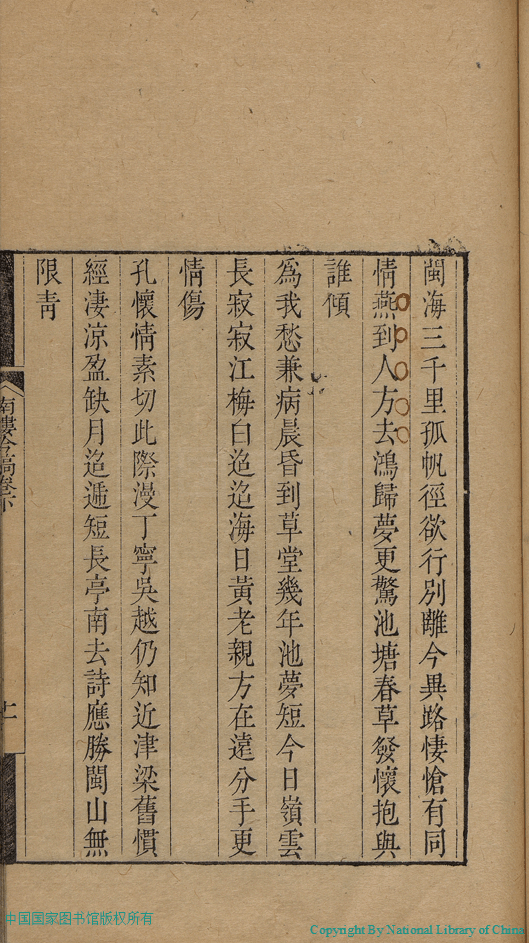 閩海三千里孤帆徑欲行別離今異路悽愴有同
情燕到人方去鴻歸夢更驚池塘春草發懷抱與
誰傾
爲我愁兼病晨昏到草堂幾年池夢短今日嶺雲
長寂寂江梅白迢迢海日黃老親方在遠分手更
情傷
孔懷情素切此際漫丁寧吳越仍知近津梁舊慣
經淒涼盈缺月迢遞短長亭南去詩應勝閩山無
限靑
南樓吟稿卷下
十一
中国国家图书馆版权所有
Copyright By National Library of China